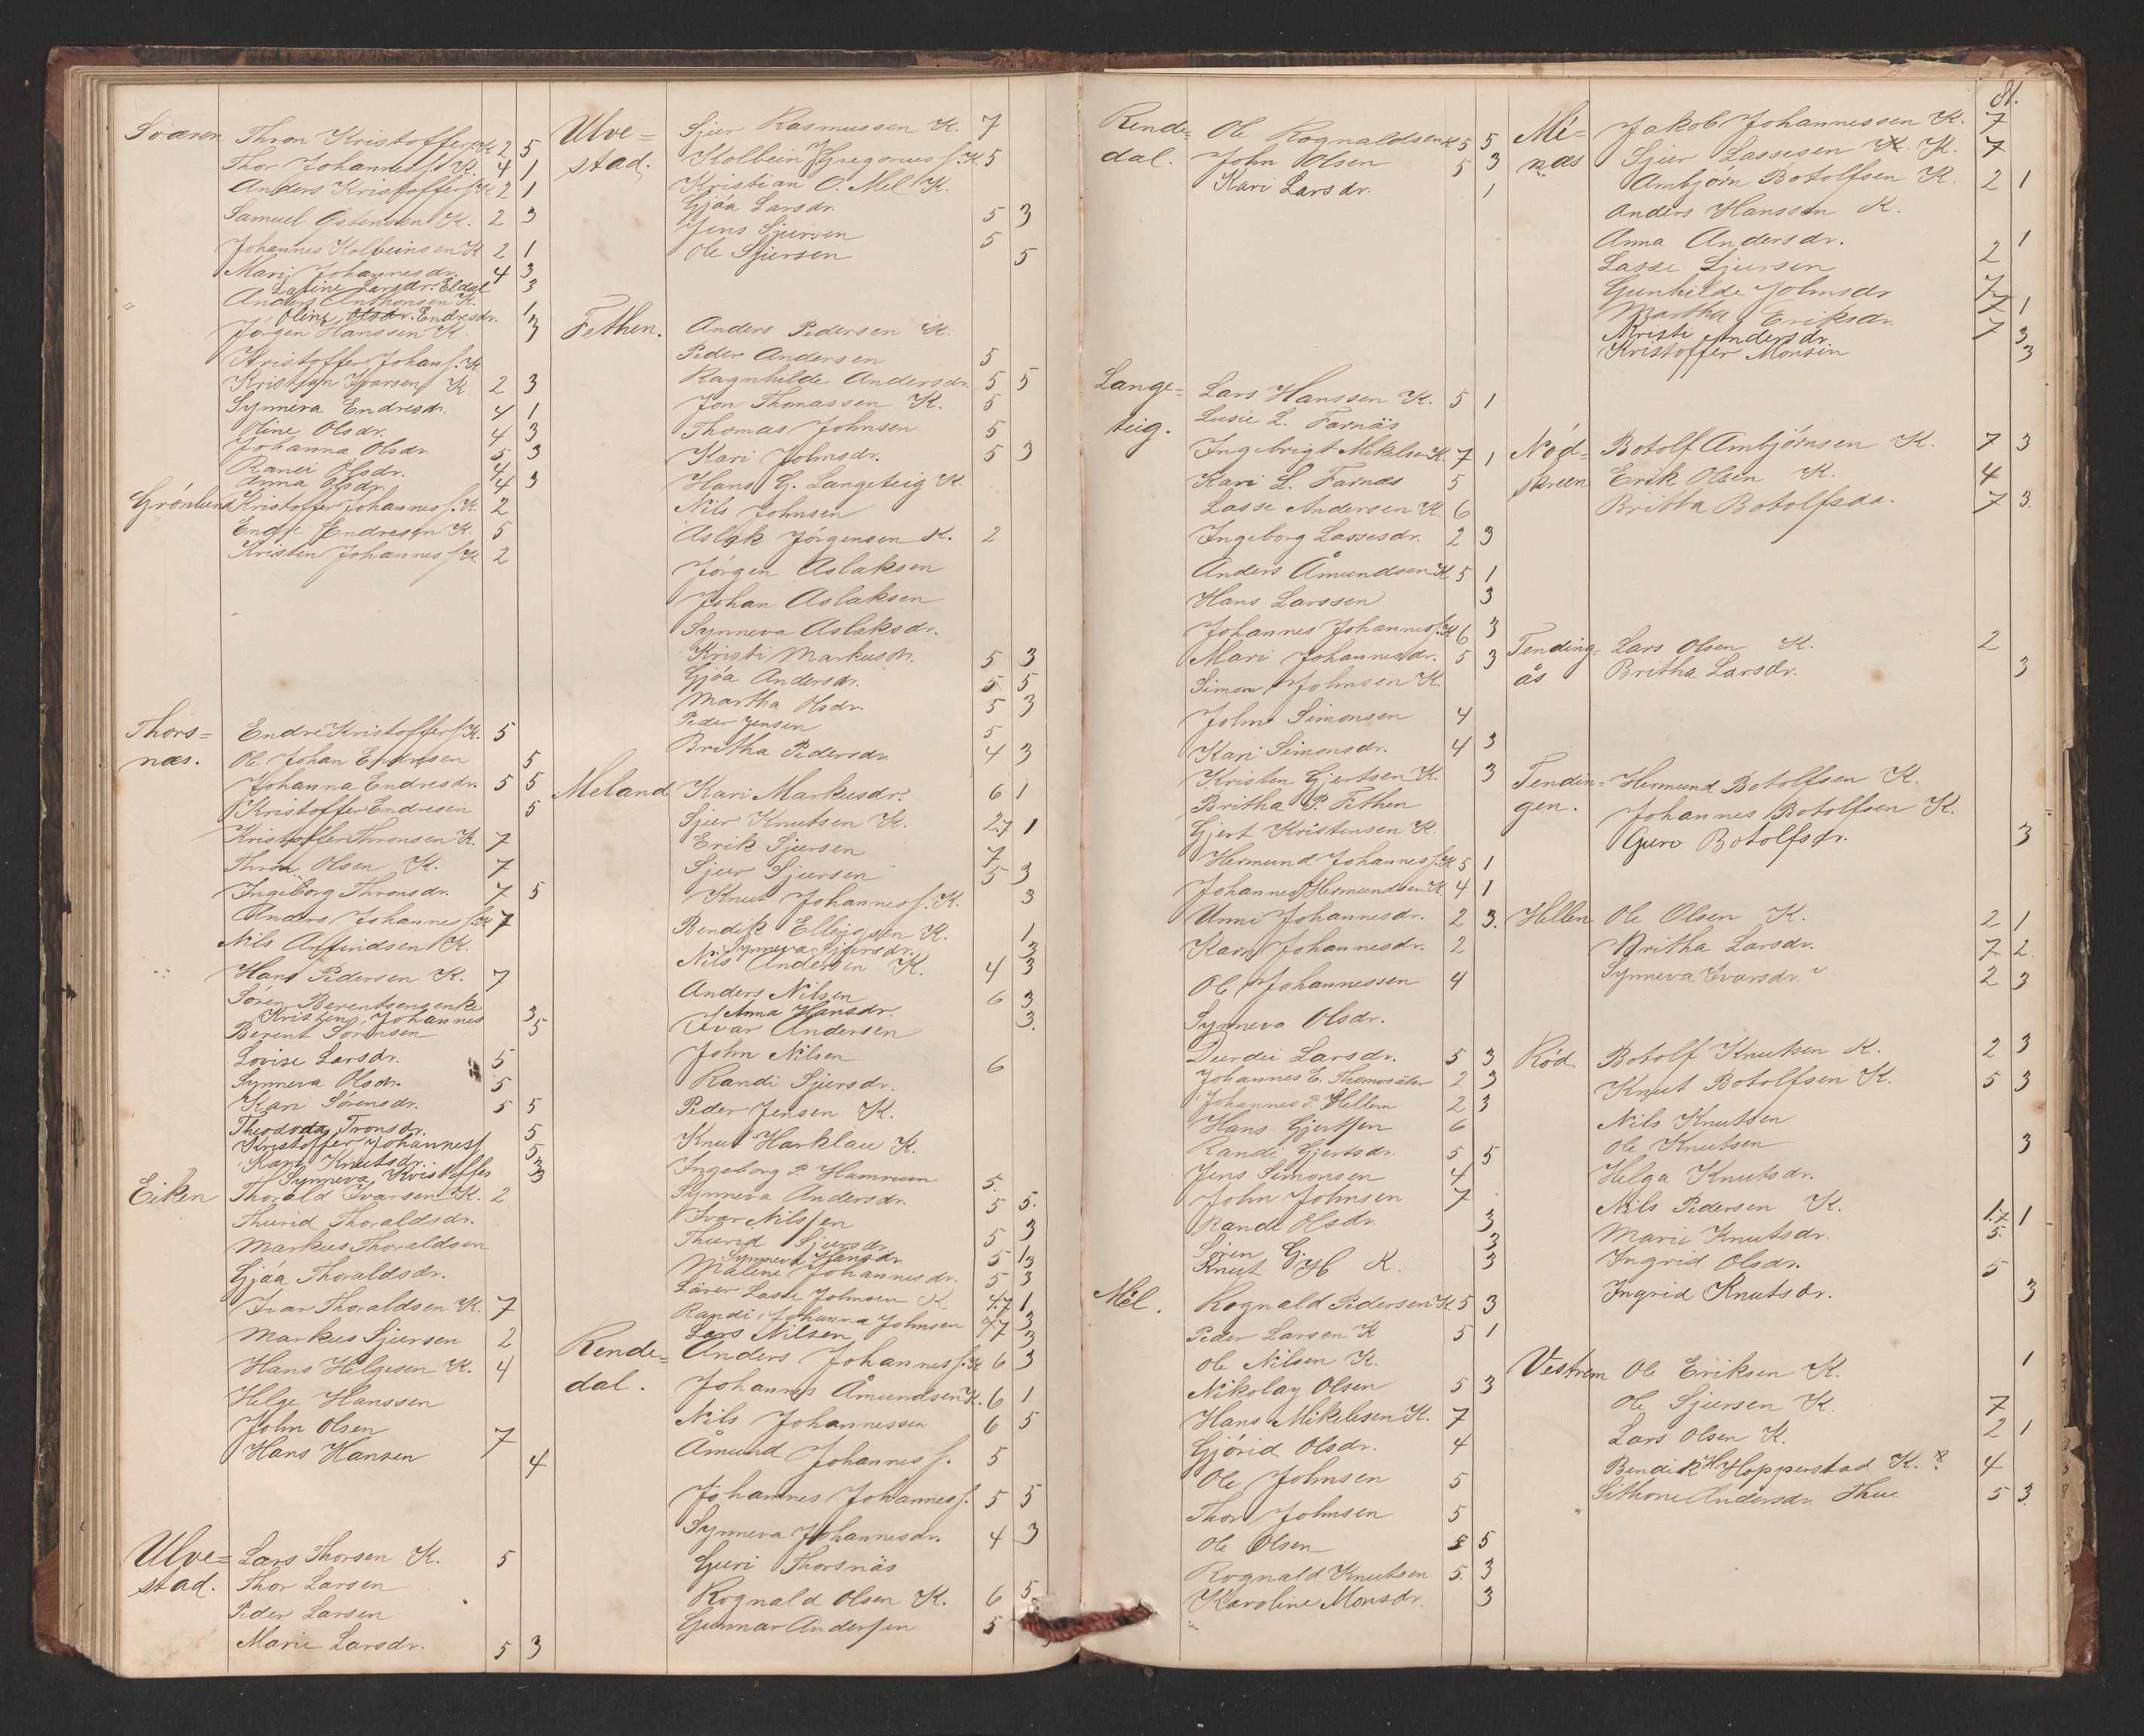 Sværen Thron Kristoffers. K. 2 5
Thor Johannes s. K. 4 1
Anders Kristoffers. K. 2 1
Samuel Østensen K. 2 3
Johannes Kolbeinsen K 2 1
Mari Johannesdr. 4 3
Larsdr. Eldal 3
Anders Anthonsen K.
Oline Olsdr. Endresdr. 1
Jørgen Hanssen K 3
Kristoffer Johans. K.
Kristian Ivarsen K 2 3
Synneva Endresdr. 4 1
Oline Olsdr. 4 3
Johanna Olsdr. 5 3
Ranei Olsdr. 4
Anna Olsdr. 4 3
Grönlund Kristoffer Johannes s. K. 2
Endre Endresen K. 5
Kristen Johannes s. K. 2
Thors=
næs.
Endre Kristoffers. K. 5
Ole Johan Endresen 5
Johanna Endresdr. 5 5
Kristoffer Endresen 5
Kristoffer Thronsen K. 7
Thron Olsen K. 7
Ingeborg Thronsdr. 7 5
Anders Johannes s. K 7
Nils Anfindsen K.
Hans Pedersen K. 7
Sören Berentsen
Kristen Johannes 3
Berent Sörensen 5
Lovise Larsdr. 5
Synneva Olsdr. 5
Kari Sörensdr. 5 5
Tronsdr. 5
Kristoffer Johanness 5
Kari Knutsdr. 3
Synneva Kristoffes 3
Eiken Thorald Ivarsen K. 2
Thurid Thoraldsdr.
Markus Thoraldsen
Gjöa Thoraldsdr.
Ivar Thoraldsen K. 7
Markus Sjursen 2
Hans Helgesen K. 4
Helge Hanssen
John Olsen 7
Hans Hansen 4
Ulve=
stad.
Lars Thorsen K. 5
Thor Larsen
Peder Larsen
Marie Larsdr. 5 3
Ulve=
stad.
Sjur Rasmussen K. 7
Kolbein Gregorius s. K 5
Kristian O. Mel K.
Gjöa Larsdr. 5 3
Jens Sjursen 5
Ole Sjursen 5
Fethen. Anders Pedersen K.
Peder Andersen 5
Ragnhilde Andersdr. 5 5
Jon Thomassen K. 5
Thomas Johnsen 5
Kari Johnsdr. 5 3
Hans G. Langeteig K.
Nils Johnsen
Aslak Jörgensen K. 2
Jörgen Aslaksen
Johan Aslaksen
Synneva Aslaksdr.
Kristi Markusdr. 5 3
Gjöa Andersdr. 5 5
Martha Olsdr. 5 3
Peder Jensen 5
Britha Pedersdr. 4 3
Meland Kari Markusdr. 6 1
Sjur Knutsen K. 2.7 1
Erik Sjursen 7
Sjur Sjursen 5 3
Knut Johannes s. K. 3
Bendik Ellingsen K. 1
Synneva Sjursdr. 3
Nils Andersen K. 4 3
Anders Nilsen 6 3
Anna Hansdr. 3.
Ivar Andersen
John Nilsen 6
Randi Sjursdr.
Peder Jensen K.
Knut Harklau K.
Ingeborg P. Hammum 5.
Synneva Andersdr. 5 5.
Ivar Nilssen
Thurid Sjursdr. 5 3
Synneva Hansdr.
Malene Johannesdr. 5 3
Lärer Lasse Johnsen K 4.7 1
Randi, Johanna Johnsen 47 3
Lars Nilsen 3
Rende=
dal.
Anders Johannes s. K 6 3
Johannes Åmundsen K. 6 1
Nils Johannessen 6 5
Åmund Johannes s. 5
Johannes Johannes s. 5 5
Synneva Johannesdr. 4 3
Guri Thorsnäs
Rognald Olsen K. 6 5
Gunnar Anderssen 5
Rende=
dal.
Ole Rognaldsen K 5 5
John Olsen 5 3
Kari Larsdr. 1
Lange=
teig.
Lars Hanssen K. 5 1
Lusie L. Farnäs
Ingebrigt Mikelsen K. 7 1
Kari L. Farnæs 5
Lasse Andersen K. 6
Ingeborg Lassesdr. 2 3
Anders Åmundsen K 5 1
Hans Larssen 3
Johannes Johannes s. K 6 3
Mari Johannesdr. 5 3
Simon Johnsen K.
John Simonsen 4
Kari Simonsdr. 4 3
Kristen Gjertsen K. 3
Britha P. Fethen
Gjert Kristensen K.
Hermund Johannes s. K 5 1
Johannes Hermundsen K 4 1
Unni Johannesdr. 2 3.
Kari Johannesdr. 2
Ole Johannessen 4
Synneva Olsdr.
Durdei Larsdr. 5 3
Johannes E. 2 3
Johannes P. Hellem 2 3
Hans Gjertsen 6
Randi Gjertsdr. 5 5
Jens Simonsen 4
John Johnsen 7
Randi Olsdr. 3
Sören G. 3
Knut H K. 3
Mel. Rognald Pedersen K. 5 3
Peder Larsen K 5 1
Ole Nilsen K.
Nikolay Olsen 5 3
Hans Mikelesen K. 7
Gjörid Olsdr. 4
Ole Johnsen 5
Thor Johnsen 5
Ole Olsen 5 5
Rognald Knutsen 5. 3
Karoline Monsdr. 3
81.
Me=
næs
Jakob Johannessen K. 7
Sjur Lassesen K. K. 7
Ambjörn Botolfsen K. 2 1
Anders Hanssen K.
Anna Andersdr. 1
Lasse Sjursen 2
Gunhilde Johnsdr 7
Martha Eriksdr. 7 1
Kristi Andersdr. 7 3
Kristoffer Monsen 3
Nöd=
skreen
Botolf Ambjörnsen K. 7 3
Erik Olsen K. 4
Britha Botolfsdr. 7 3.
Tending=
ås
Lars Olsen K. 2
Britha Larsdr. 3
Tendin=
gen.
Hermund Botolfsen K.
Johannes Botolfsen K.
Guro Botolfsdr. 3
Hellen Ole Olsen K. 2 1
Britha Larsdr. 7 2.
Synneva Ivarsdr. 2 3
Röd Botolf Knutsen K. 2 3
Knut Botolfsen K. 5 3
Nils Knutsen
Ole Knutsen 3
Helga Knutsdr.
Nils Pedersen K. 1.7 1
Marie Knutsdr. 5
Ingrid Olsdr. 5
Ingrid Knutsdr. 3
Vestrem Ole Eriksen K. 1
Ole Sjursen K 7
Lars Olsen K. 2 1
Bendik H Hopperstad K. 4
Andersdr. Thue 5 3.